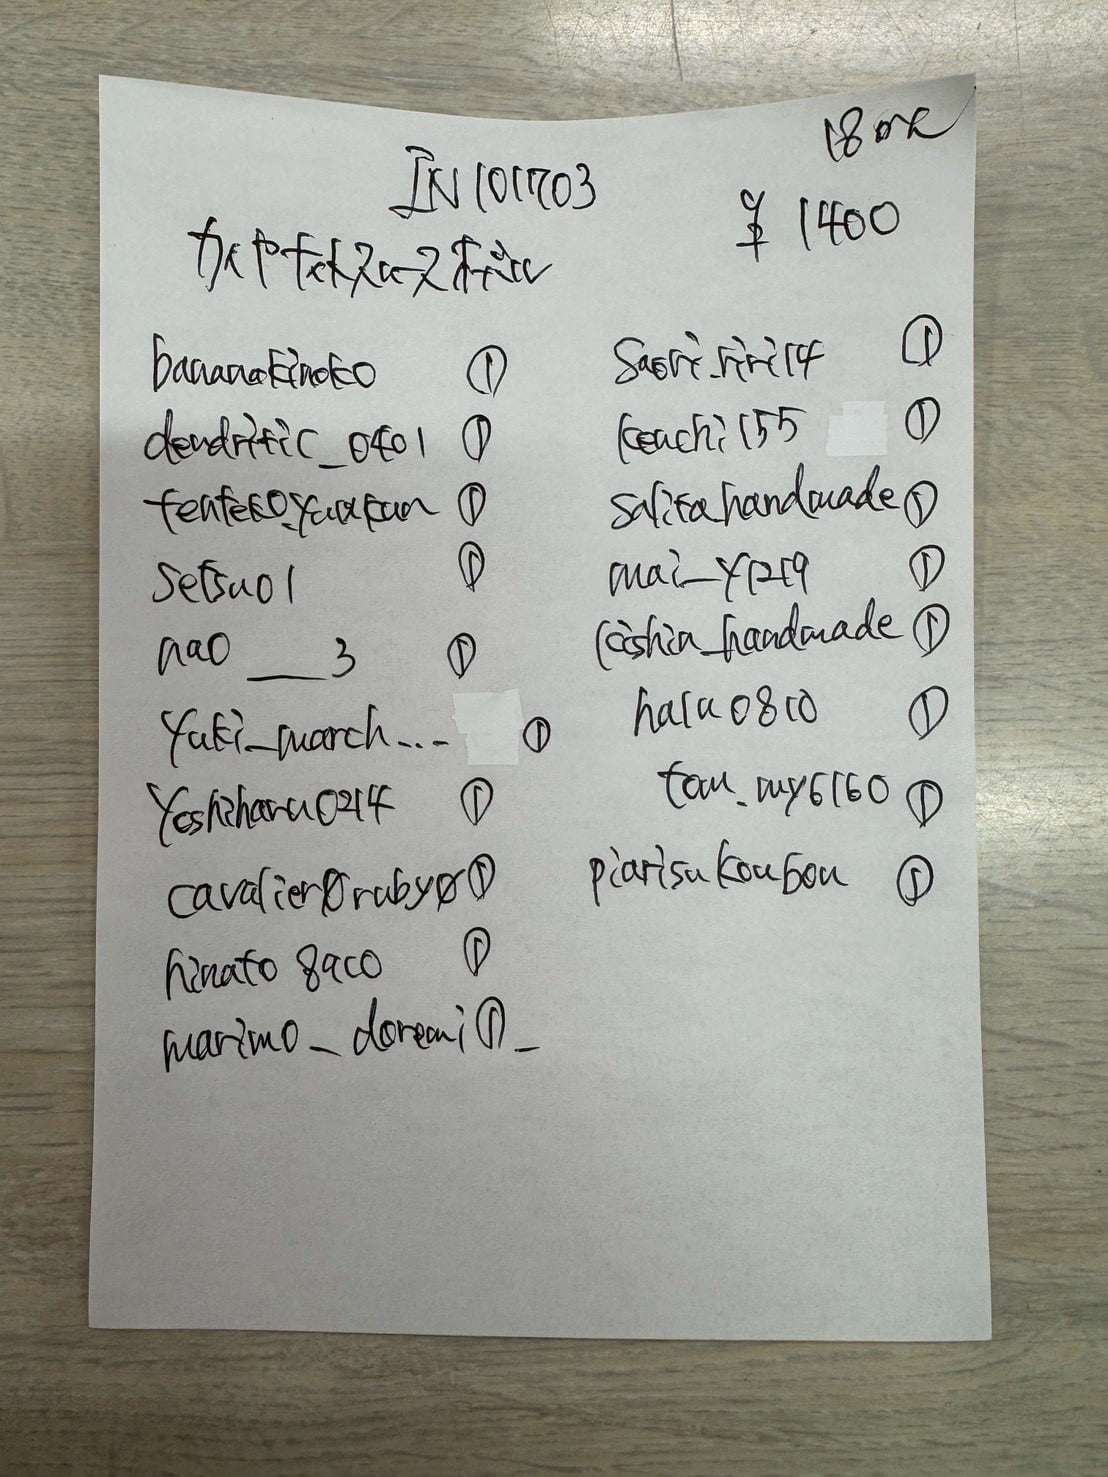 18 ok
IN101703
¥ 1400
bananakinoko ①
dendritic_0401 ①
tenteko.yuukun ①
setsu01 ①
nao___3 ①
yuki_march... ①
yoshiharu0214 ①
cavalier0ruby0 ①
hinato8910 ①
marimo_doremi ① _
saori.riri14 ①
keachi155 ①
salisahandmade ①
mai_y1219 ①
kishin_handmade ①
halu0810 ①
tom.my6160 ①
piarisukoubou ①